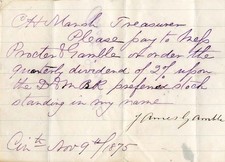 C H Marsh Treasurer
Please pay to Mess
Procter & Gamble or order the
quarterly dividend of 2% upon
the D & M RR preferred stock
standing in my name
James Gamble
Cin Nov 9th 1875